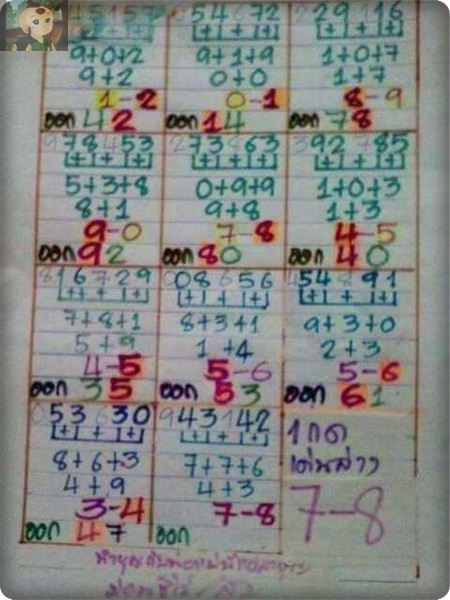 45157
9+0+2
9+2
1-2
ออก 42
054672
9+1+9
0+0
0-1
ออก 14
229716
1+0+7
1+7
8-9
ออก 78
978453
5+3+8
8+1
9-0
ออก 92
273863
0+9+9
9+8
7-8
ออก 80
392785
1+0+3
1+3
4-5
ออก 40
816729
7+8+1
5+9
4-5
ออก 35
008656
8+3+1
1+4
5-6
ออก 53
454891
9+3+0
2+3
5-6
ออก 61
053630
8+6+3
4+9
3-4
ออก 47
943142
7+7+6
4+3
7-8
ออก
เด่นล่าง
7-8